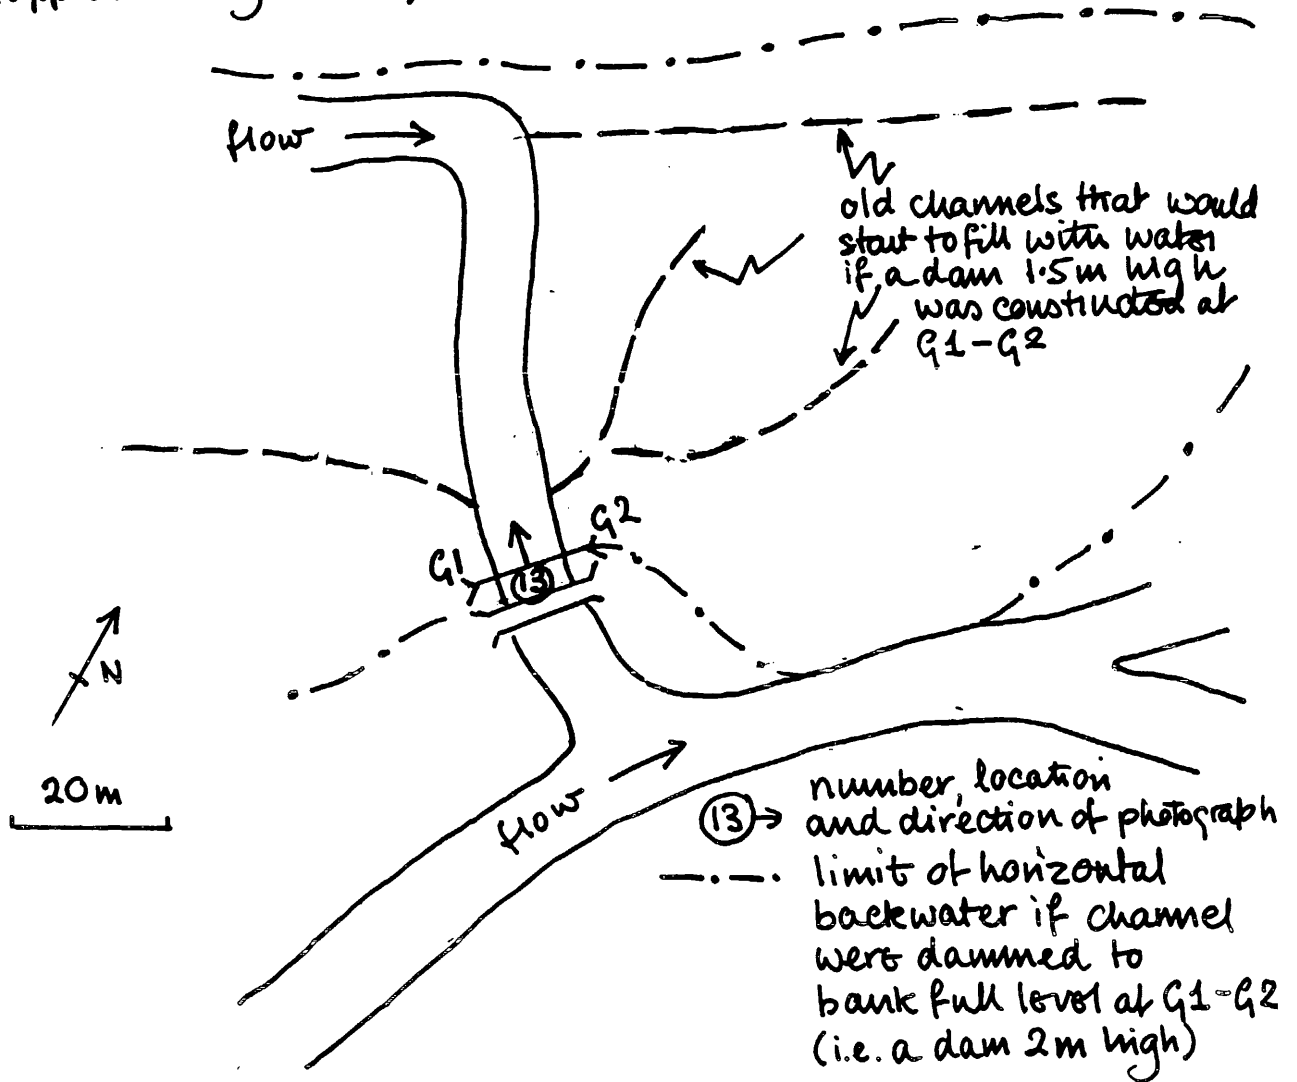 flow
old channels that would
start to fill with water
if a dam 1.5m high
was constructed at
G1-G2
G2
G1
13
N
20m
flow
13
number, location
and direction of photograph
limit of horizontal
backwater if channel
were dammed to
bank full level at G1-G2
(i.e. a dam 2m high)